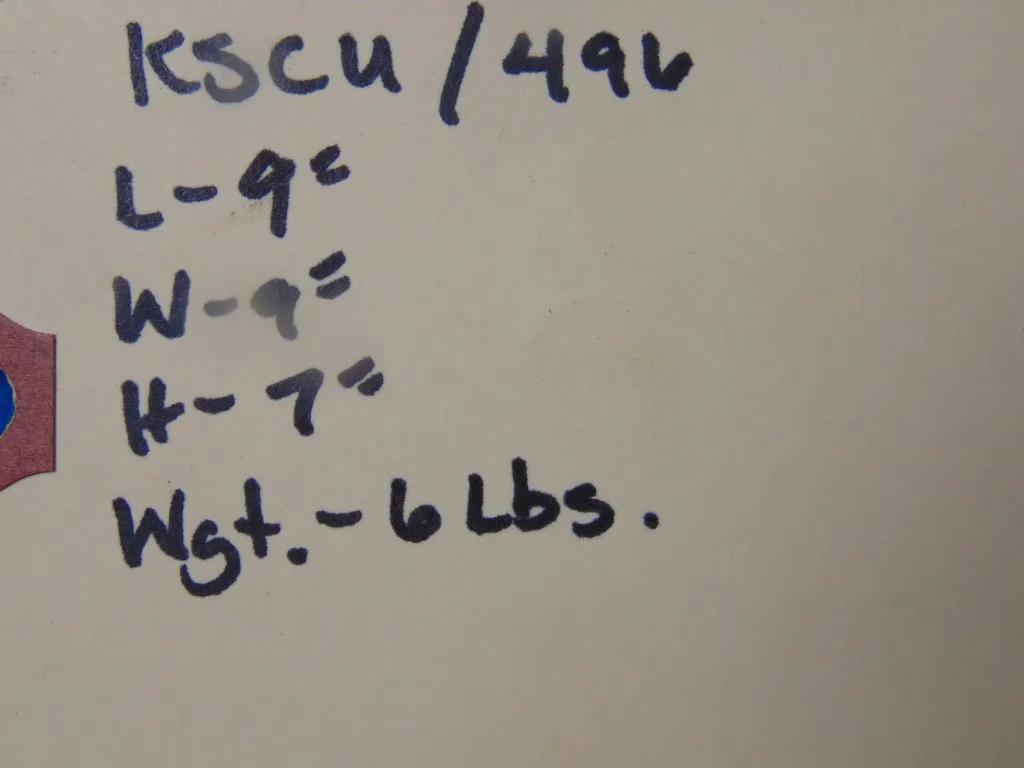 KSCU / 496
L - 9"
W - 9"
H - 7"
Wgt. - 6 Lbs.